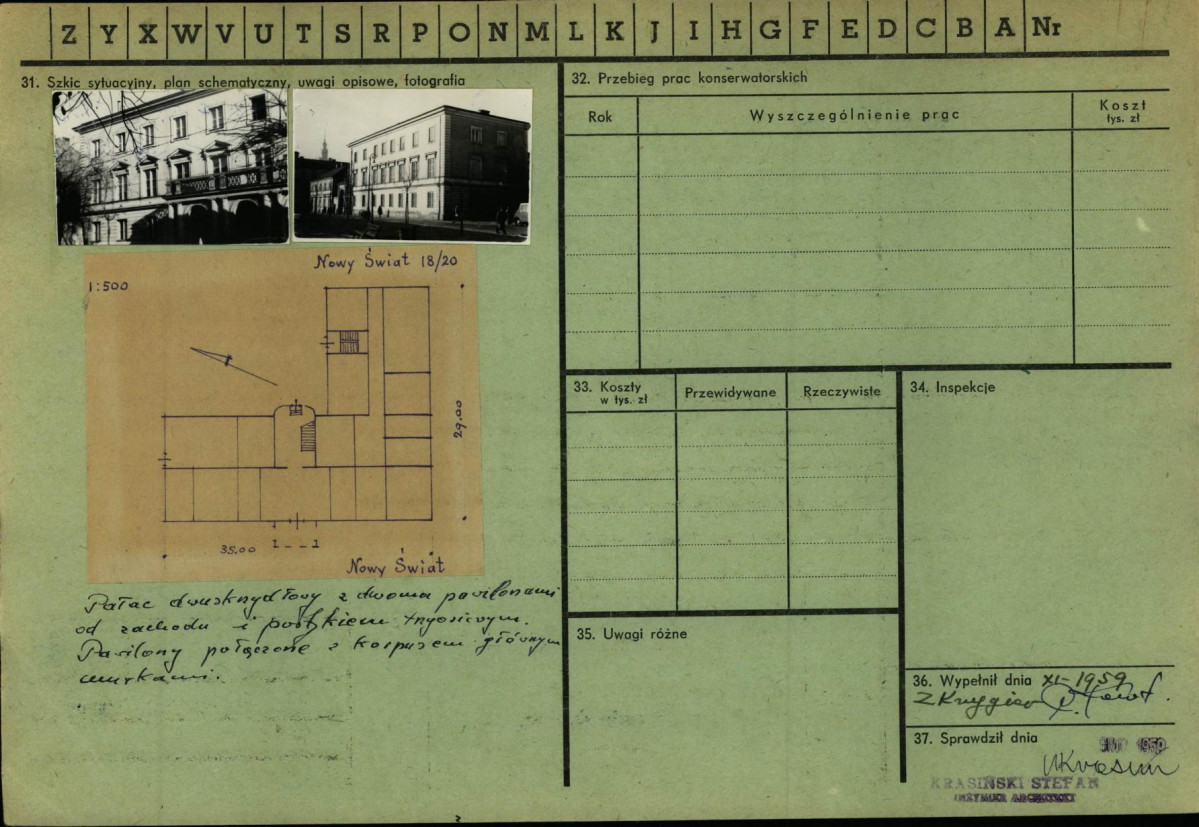 Z Y X W V U T S R P O N M L K J I H G F E D C B A Nr
31. Szkic sytuacyjny, plan schematyczny, uwagi opisowe, fotografia
Nowy Świat 18/20
1:500
29.00
35.00
Nowy Świat
Pałac dwuskrzydłowy z dwoma pawilonami
od zachodu i portykiem
Pawilony połączone z korpusem głównym
murkami.
32. Przebieg prac konserwatorskich
Rok
Wyszczególnienie prac
Koszt
tys. zł
33. Koszty
w tys. zł
Przewidywane
Rzeczywiste
34. Inspekcje
35. Uwagi różne
36. Wypełnił dnia XI-1959
37. Sprawdził dnia
1959
KRASIŃSKI STEFAN
INŻYNIER ARCHITEKT